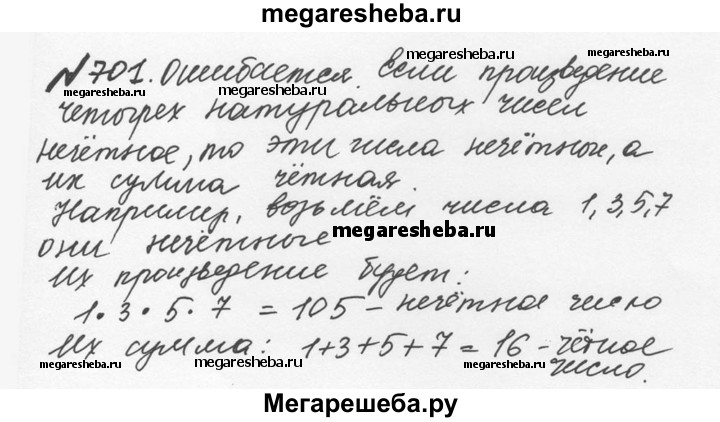 megaresheba.ru
№701. Ошибается. Если произведение
megaresheba.ru megaresheba.ru megaresheba.ru
четырех натуральных чисел
нечётное, то эти числа нечётные, а
их сумма чётная.
Например, возьмём числа 1,3,5,7
megaresheba.ru
они нечётные
Их произведение будет:
1·3·5·7 = 105 – нечётное число
Их сумма: 1+3+5+7=16 – чётное
megaresheba.ru megaresheba.ru megaresheba.ru
число.
Мегарешеба.ру